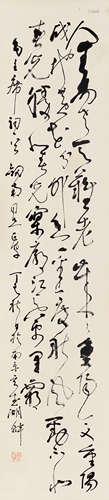 人生易老天难老岁岁重阳今又重阳
战地黄花分外香一年一度秋风劲不似
春光胜似春光寥廓江天万里霜
毛主席词 丁巳秋于南京玄武湖畔